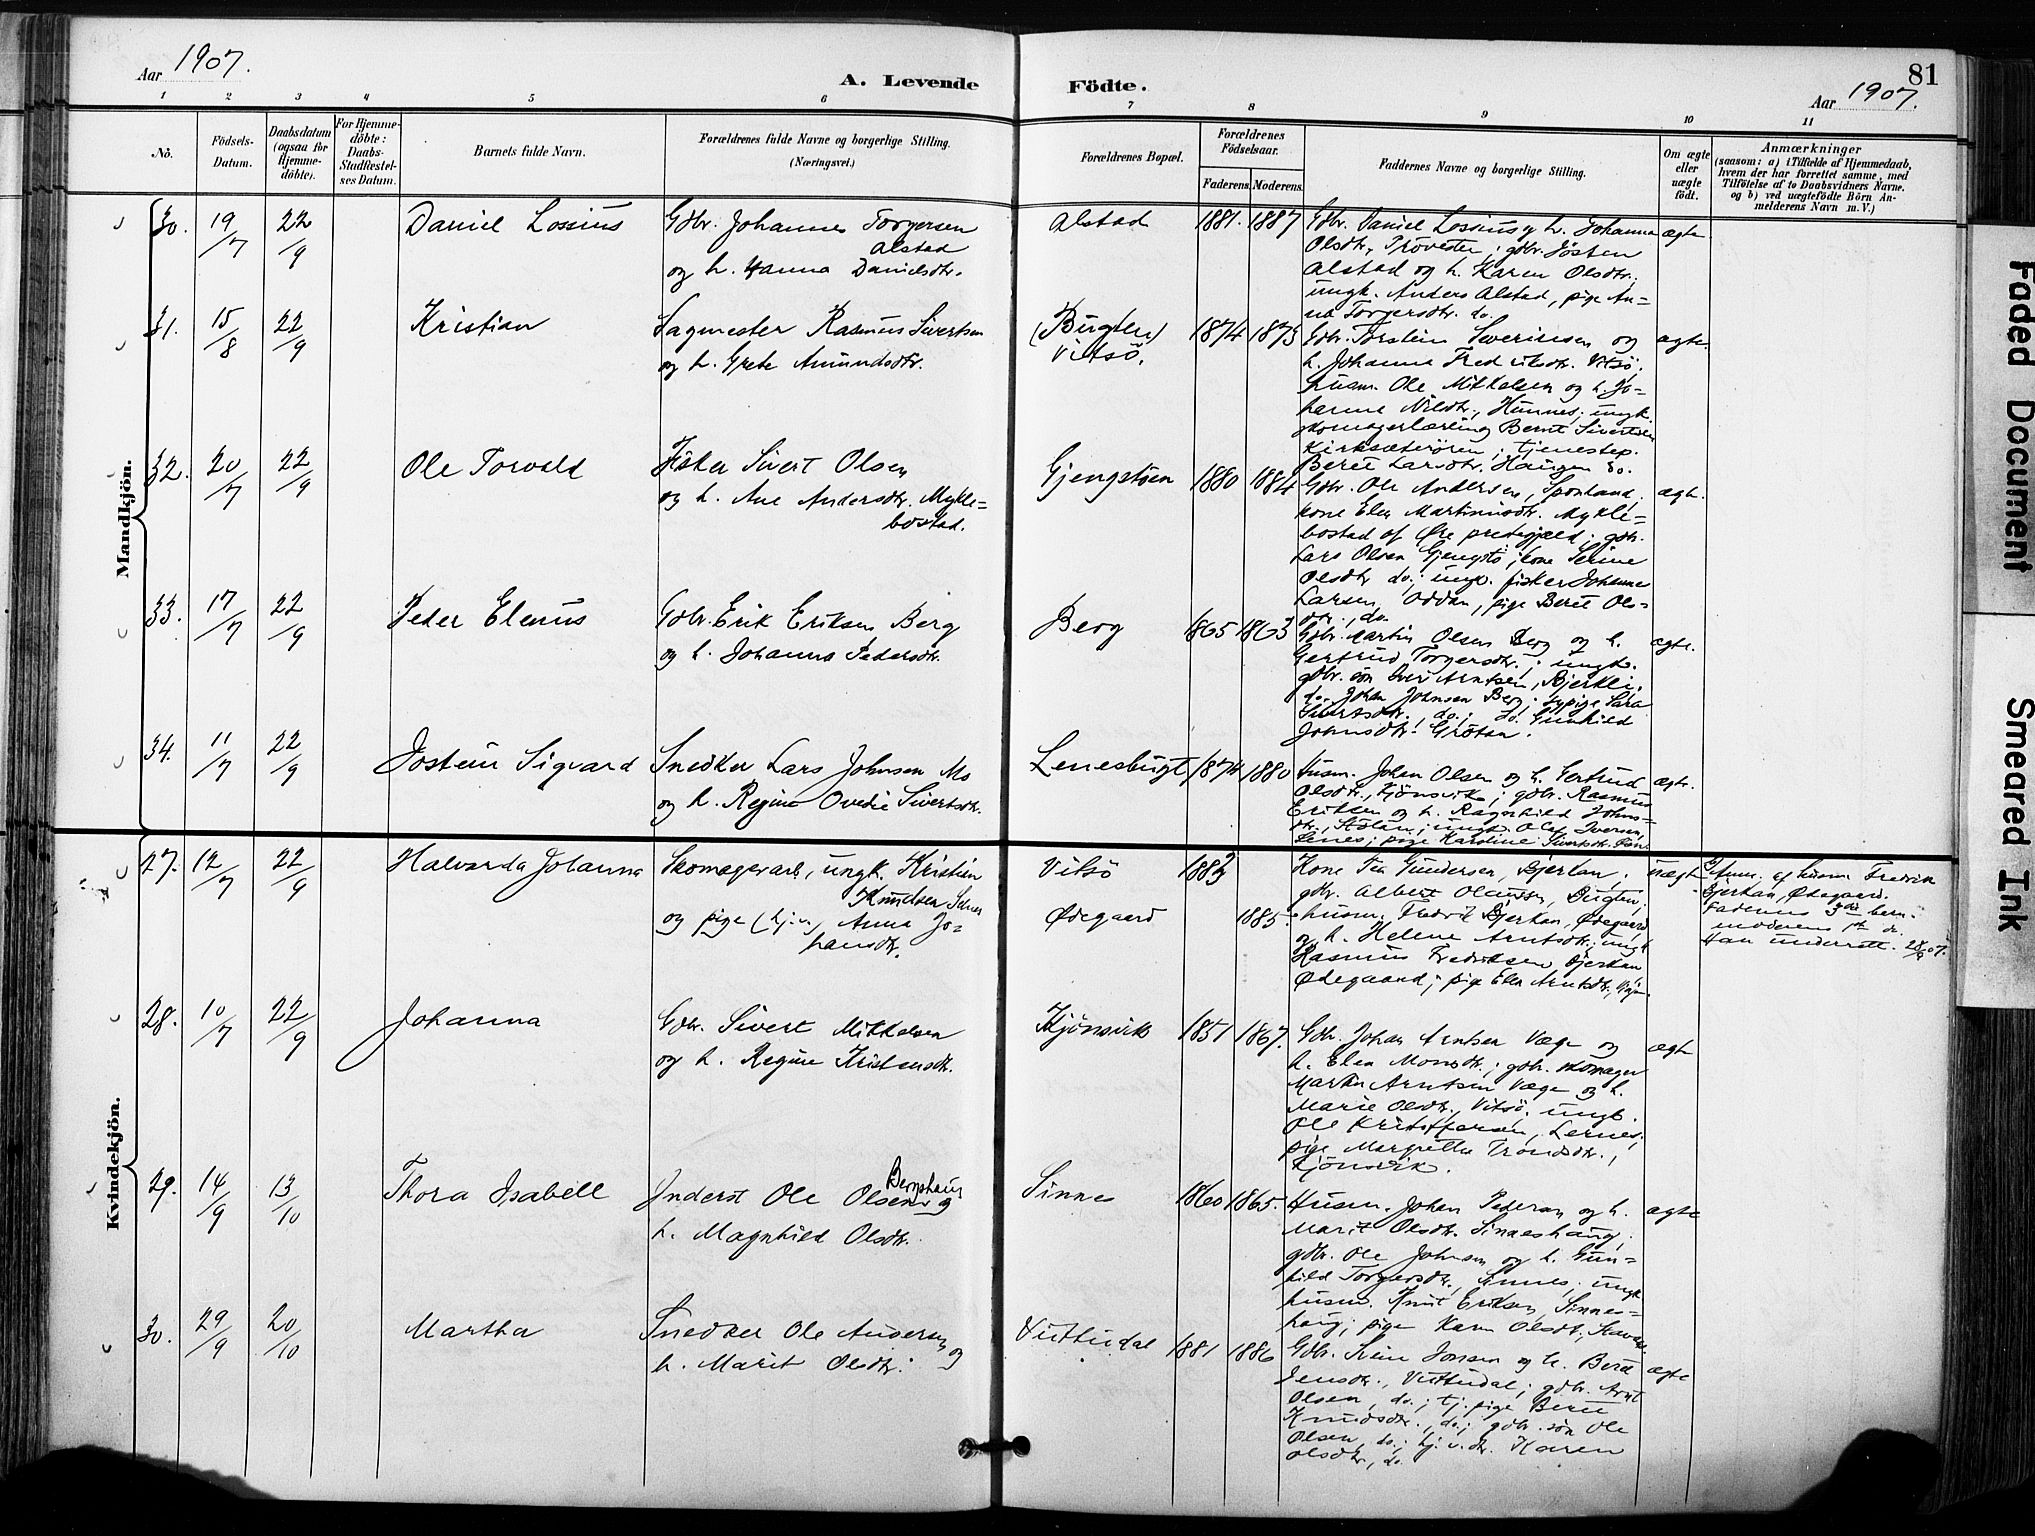 Aar 1907.
A. Levende Födte.
81
Aar 1907.
1 2 3 4 5 6 7 8 9 10 11
Nö.
Födsels-Datum.
Daabsdatum (ogsaa for Hjemme-döbte).
For Hjemme-döbte: Daabs-Stadfæstel-ses Datum.
Barnets fulde Navn.
Forældrenes fulde Navne og borgerlige Stilling. (Næringsvei.)
Forældrenes Bopæl.
Forældrenes Födselsaar.
Faderens. Moderens.
Faddernes Navne og borgerlige Stilling.
Om ægte eller uægte födt.
Anmærkninger
(saasom: a) i Tilfælde af Hjemmedaab,
hvem der har forrettet samme, med
Tilföielse af to Daabsvidners Navne.
og b) ved uægtefödte Börn An-
melderens Navn m. V.)
Mandkjön.
30. 19/7 22/9 Daniel Lossius
Gdbr. Johannes Torgersen
Alstad
og h. Hanna Danielsdtr.
Alstad 1881. 1887
Gdbr. Daniel Lossius og h. Johanna
Olsdtr, Prövesten; gdbr. Jösten
Alstad og h. Karen Olsdtr.;
ungk. Anders Alstad, pige An-
na Torgersdtr. do.
ægte
31. 15/8 22/9 Kristian
Sagmester Rasmus Sivertsen
og h. Grete Amundsdtr.
(Bugten) Vitsö. 1874 1873
Gdbr. Torstein Severinsen og
h. Johanna Fredriksdtr. Vitsö;
husm. Ole Mikkelsen og h. Jo-
hanne Nilsdtr., Hunnes; ungk.
skomagerlærling Bernt Sivertsen
Kirksæterören; tjenestep.
Berit Larsdtr. Haugen do.
ægte.
32. 20/7 22/9 Ole Torvald
Fisker Sivert Olsen
og h. Ane Andersdtr. Mykle-
bostad.
Gjengstöen 1880 1884
Gdbr. Ole Andersen,
kone Elen Martinusdtr. Mykle-
bostad af Øre prestegjæld; gdbr.
Lars Olsen Gjengstö; kone Serine
Olsdtr do.; ungk. fisker Johannes
Larsen, Oddan, pige Berit Ols-
dtr., do.
ægte.
33. 17/7 22/9 Peder Elenus
Gdbr. Erik Eriksen Berg
og h. Johanna Pedersdtr.
Berg 1865 1863
Gdbr. Martin Olsen Berg og h.
Gertrud Torgersdtr.; ungk.
gdbr. sön Iver Arntsen, Bjerkli;
do. Johan Johnsen Berg; sypige Sara
Sivertsdtr. do.; do. Gunhild
Johnsdtr. Grötan.
ægte.
34. 11/7 22/9 Jostein Sigvard
Snedker Lars Johnsen Mo
og h. Regine Ovedie Sivertsdtr.
Lenesbugt 1874 1880
Husm. Johan Olsen og h. Gertrud
Olsdtr., Kjönsvik; gdbr. Rasmus
Eriksen og h. Ragnhild Johns-
dtr., Stölan; ungk. Ole Iversen,
Lenes; pige Karoline Sivertsdtr.
ægte.
Kvindekjön.
27. 12/7 22/9 Halvarda Johanna
Skomagerarb., ungk. Kristian
Knudsen
og pige (hj.) Anna Jo-
hansdtr.
Vitsö 1883
Ødegaard 1885.
Kone Tea Gundersen, Bjerkan;
gdbr. Albert Olaussen, Bugten;
husm. Fredrik Bjerkan, Ødegaard
og h. Helene Arntsdtr.; ungk.
Rasmus Fredriksen Bjerkan
Ødegaard; pige Elen Arntsdtr.,
uægte
Anm. af husm. Fredrik
Bjerkan, Ødegaard.
Faderens 3die barn.
moderens 1ste do.
Han underrett. 28/9 07.
28. 10/7 22/9 Johanna
Gdbr. Sivert Mikkelsen
og h. Regine Kristensdtr.
Kjönsvik 1851 1867.
Gdbr. Johan Arntsen Væge og
h. Elen Monsdtr.; gdbr. skomager
Martin Arntsen Væge og h.
Marie Olsdtr., Vitsö; ungk.
Ole Kristoffersen, Lernes;
pige Margrethe Trondsdtr.,
Kjönsvik.
ægte
29. 14/9 13/10 Thora Isabell
Inderst Ole Olsen Bergshaug og
h. Magnhild Olsdtr.
Sinnes 1860 1865.
Husm. Johan Pedersen og h.
Marit Olsdtr. Sinneshaug;
gdbr. Ole Johnsen og h. Gun-
hild Torgersdtr., Sinnes; ungk
husm. Knut Eriksen Sinnes-
haug; pige Karen Olsdtr,
ægte
30. 29/9 20/10 Martha
Snedker Ole Andersen og
h. Marit Olsdtr.
Vuttudal 1881 1886
Gdbr. Svein Jonsen og h. Berit
Jensdtr., Vuttudal; gdbr. Arnt
Olsen, do.; tj. pige Berit
Knudsdtr., do.; gdbr. sön Ole
Olsen, do.; hj. v. dtr. Karen
Olsdtr, do.
ægte
Faded Document
Smeared Ink